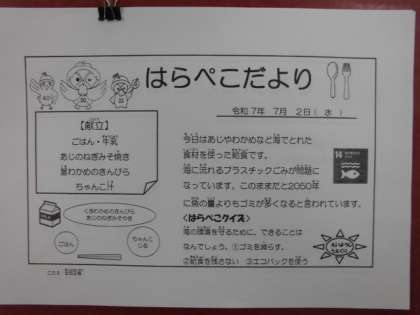 はらぺこだより
令和7年 7月 2日( 水 )
【献立】
ごはん・牛乳
あじのねぎみそ焼き
茎わかめのきんぴら
ちゃんこ汁
くきわかめのきんぴら
あじのねぎみそやき
ごはん
ちゃんこ
じる
今日はあじやわかめなど海でとれた
食材を使った給食です。
海に流れるプラスチックごみが問題に
なっています。このままだと2050年
に魚の量よりもゴミが多くなると言われています。
14
<はらぺこクイズ>
海の環境を守るために、できることは
なんでしょう。①ゴミを減らす、
②給食を残さない ③エコバックを使う